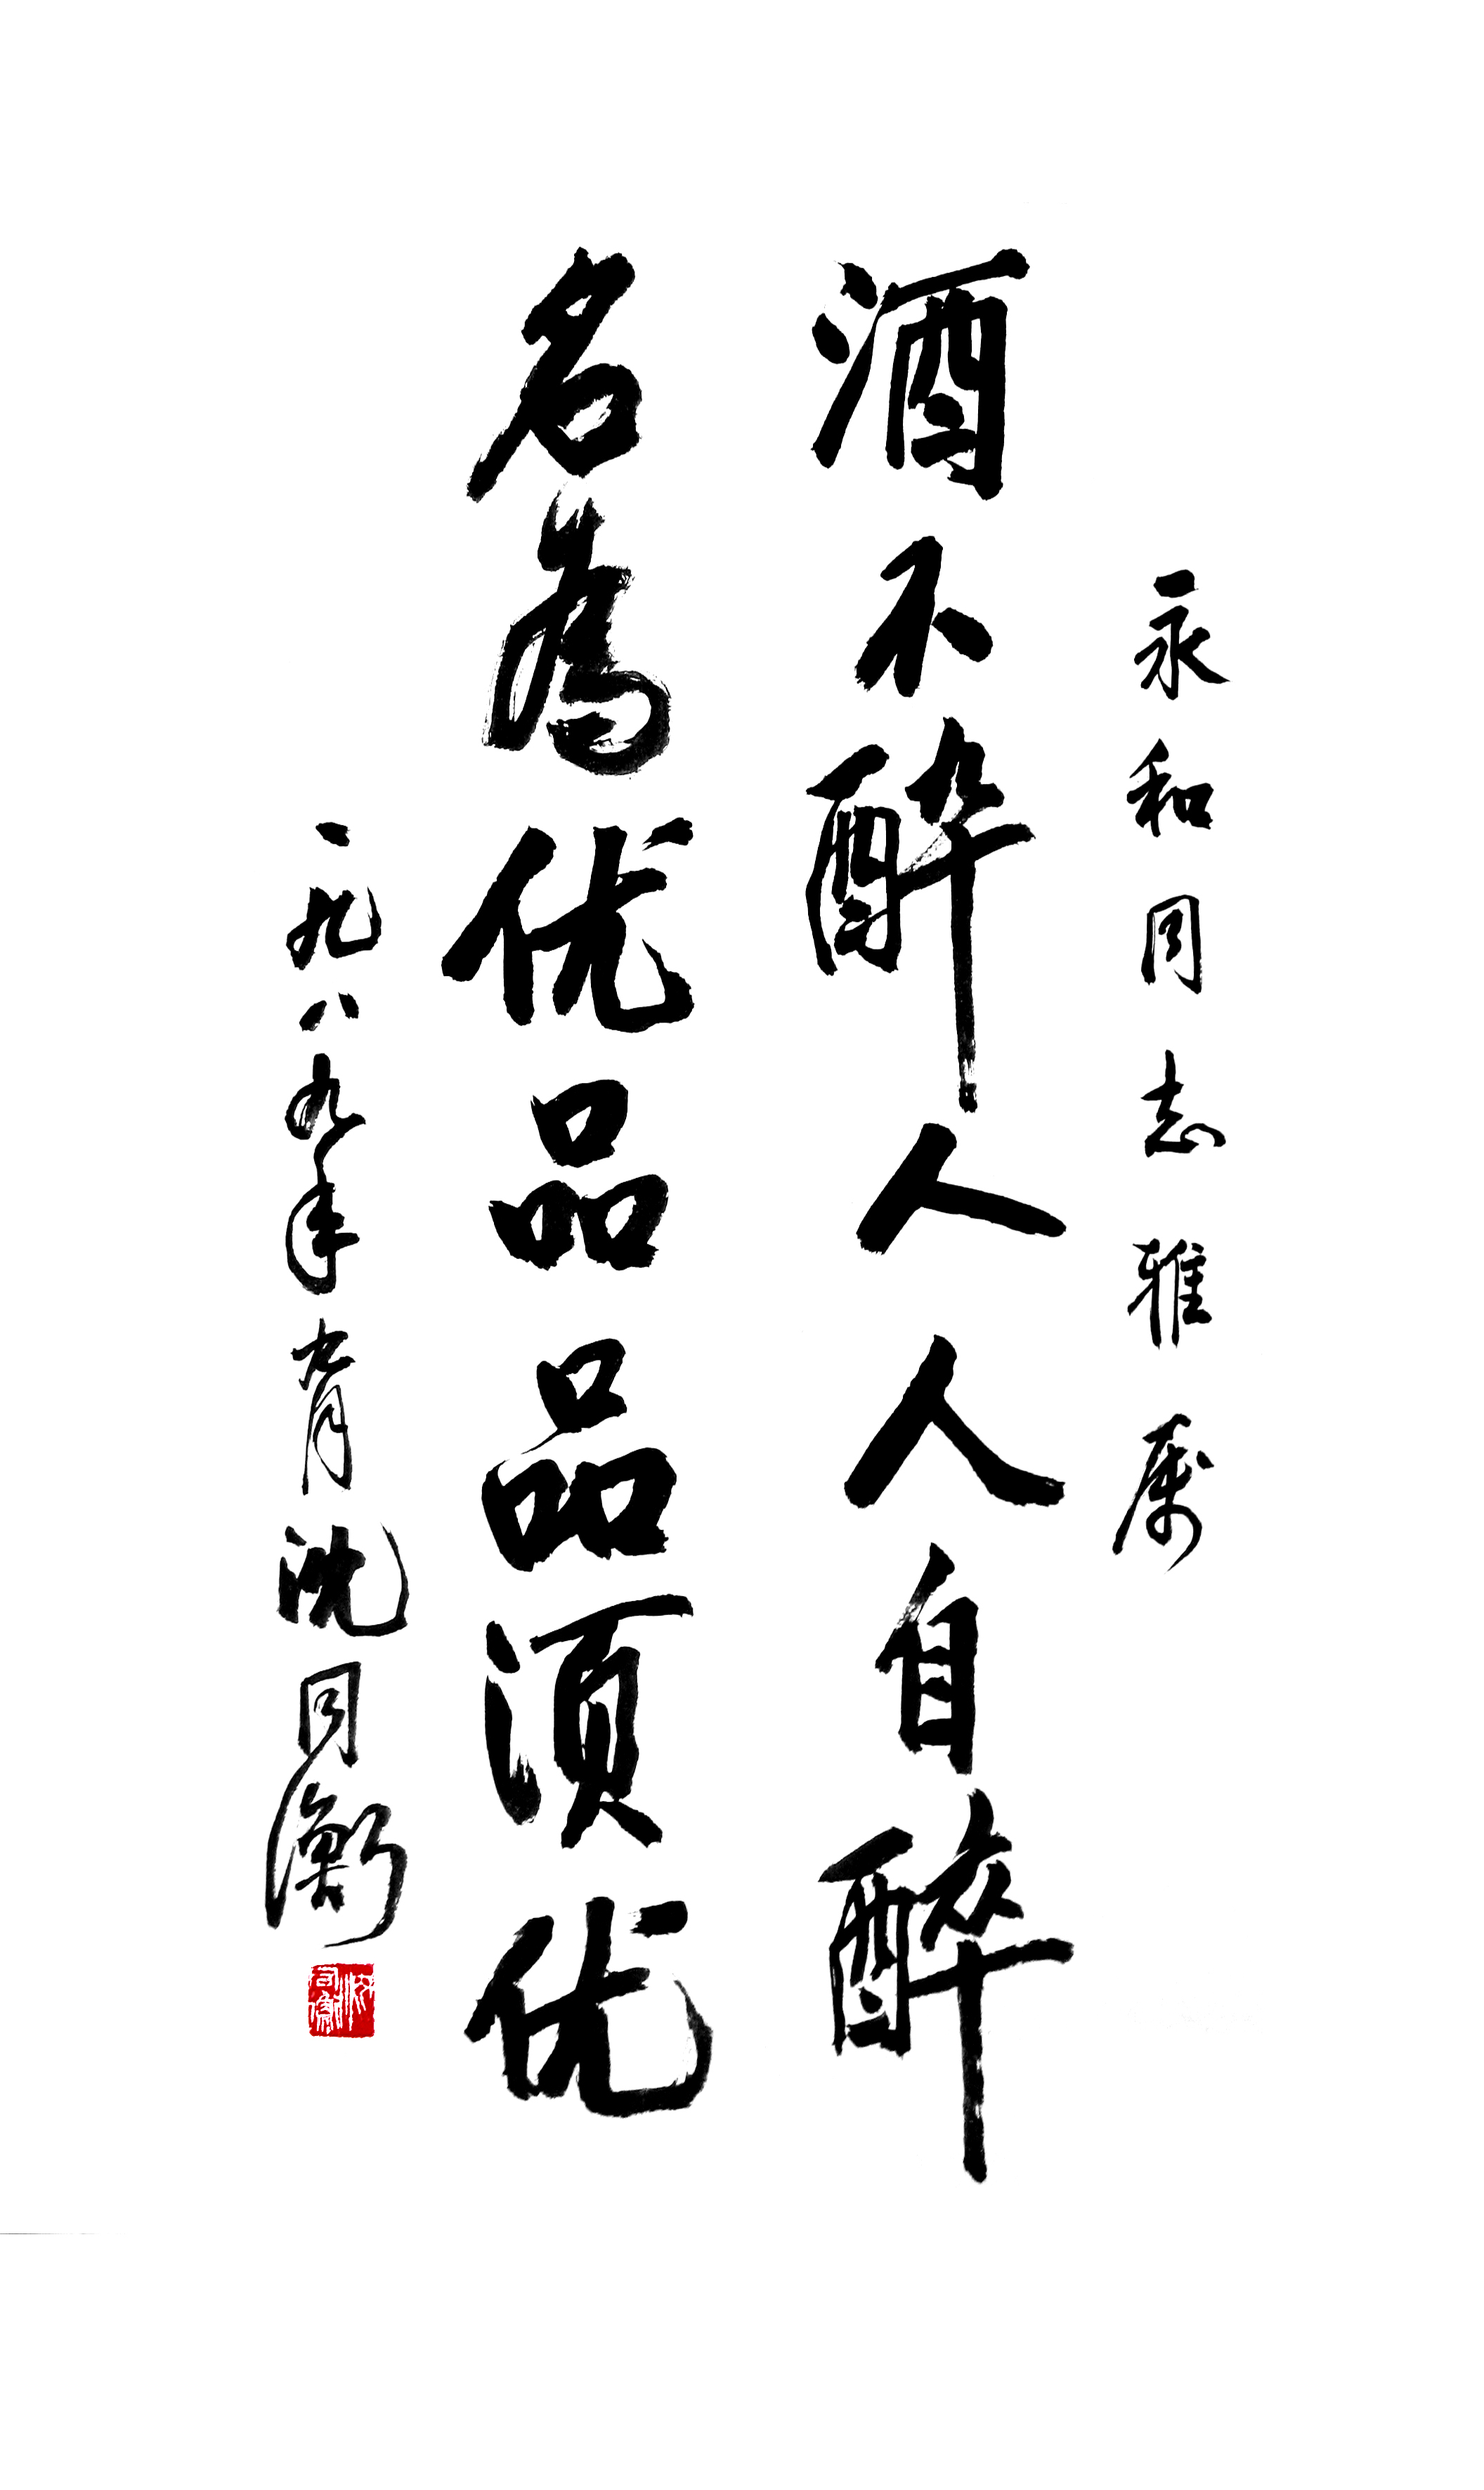 永和同志雅属
酒不醉人人自醉
名為优品品须优
一九八九年九月沈同衡
沈同衡